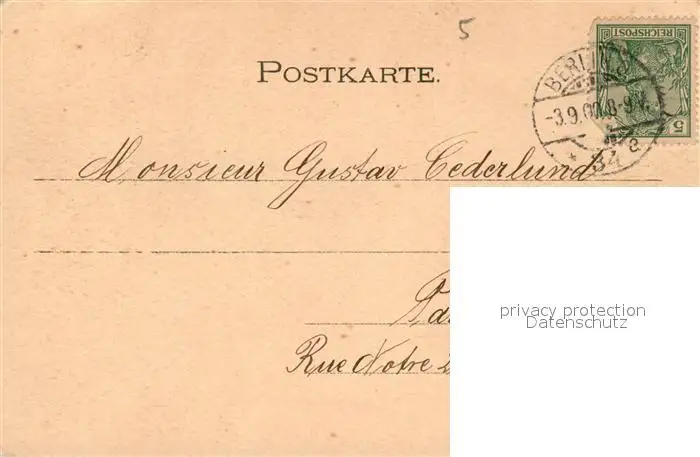 5
POSTKARTE.
REICHSPOST
5
BERLIN
-3.9.00.8-9V.
34 a
Monsieur Gustav Cederlund
privacy protection
Datenschutz
Rue Notre